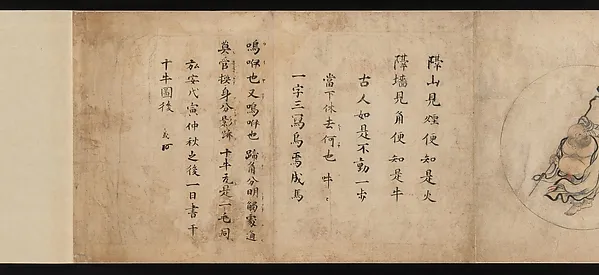 隔山見煙便知是火
隔墻見角便知是牛
古人如是不動一步
當下休去何也 咄々
一字三寫烏焉成馬
嗚咿也又嗚咿也 蹄角分明觸處通
莫管換身分影跡 十牛元是一毛同
弘安戊寅仲秋之後一日書于
十牛圖後